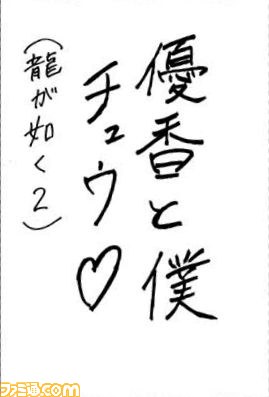 優香と僕
チュウ♡
(龍が如く2)
ファミ通.com